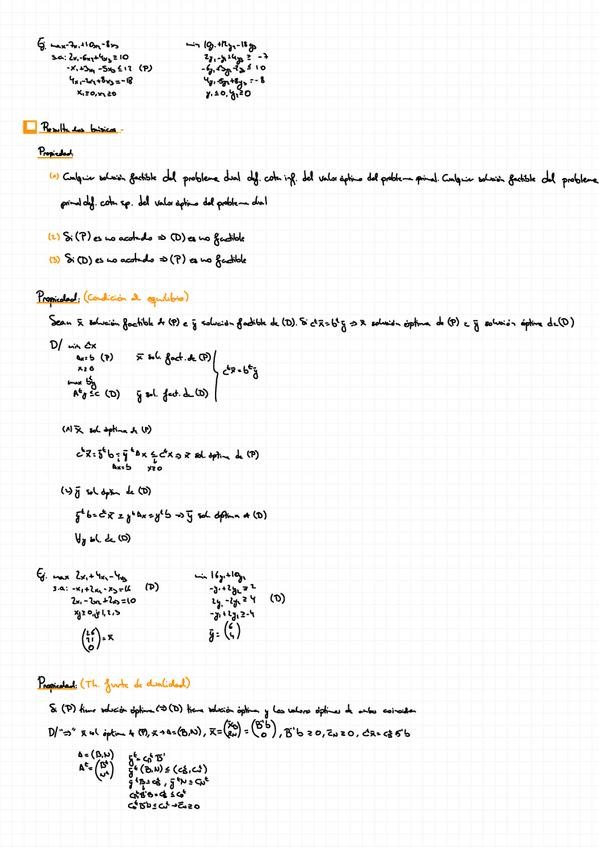 Ej. max -7x₁+10x₂-8x₃
s.a: 2x₁-6x₂+4x₃≥10
-x₁+3x₂-5x₃≤12 (P)
4x₁-2x₂+8x₃=-18
x₁≥0, x₂≥0
min 10y₁+12y₂-18y₃
2y₁-y₂+4y₃≥ -7
-6y₁+3y₂-2y₃≤10
4y₁-5y₂+8y₃=-8
y₁≤0, y₂≥0
Resultados básicos.
Propiedad:
(1) Cualquier solución factible del problema dual def. cota inf. del valor óptimo del problema primal. Cualquier solución factible del problema
primal def. cota sup. del valor óptimo del problema dual
(2) Si (P) es no acotado ⇒ (D) es no factible
(3) Si (D) es no acotado ⇒ (P) es no factible
Propiedad: (Condición de equilibrio)
Sean x̄ solución factible de (P) e ȳ solución factible de (D). Si cᵗx̄=bᵗȳ ⇒ x̄ solución óptima de (P) e ȳ solución óptima de (D)
D/ min cᵗx
Ax=b (P) x̄ sol. fact. de (P)
x≥0
max bᵗy
Aᵗy≤c (D) ȳ sol. fact. de (D)
cᵗx̄=bᵗȳ
(1) x̄ sol. óptima de (P)
cᵗx̄=ȳᵗb=ȳᵗAx≤cᵗx ⇒ x̄ sol óptima de (P)
Ax=b x≥0
(2) ȳ sol óptima de (D)
ȳᵗb=cᵗx̄≥yᵗAx̄=yᵗb ⇒ ȳ sol. óptima de (D)
∀y sol de (D)
Ej. max 2x₁+4x₂-4x₃
s.a: -x₁+2x₂-x₃=16 (P)
2x₁-2x₂+2x₃=10
xⱼ≥0, j=1,2,3
(26 21 0)=x̄
min 16y₁+10y₂
-y₁+2y₂≥2
2y₁-2y₂≥4 (D)
-y₁+2y₂≥-4
ȳ=(6 4)
Propiedad: (Th. fuerte de dualidad)
Si (P) tiene solución óptima ⇔ (D) tiene solución óptima y los valores óptimos de ambos coinciden
D/ "⇒" x̄ sol óptima de (P), x̄→A=(B,N), x̄=(x̄B x̄N)=(B⁻¹b 0), B⁻¹b≥0, c̄N≥0, cᵗx̄=cBᵗB⁻¹b
A=(B,N)
Aᵗ=(Bᵗ Nᵗ)
ȳᵗ=cBᵗB⁻¹
ȳᵗ(B,N)≤(cBᵗ,cNᵗ)